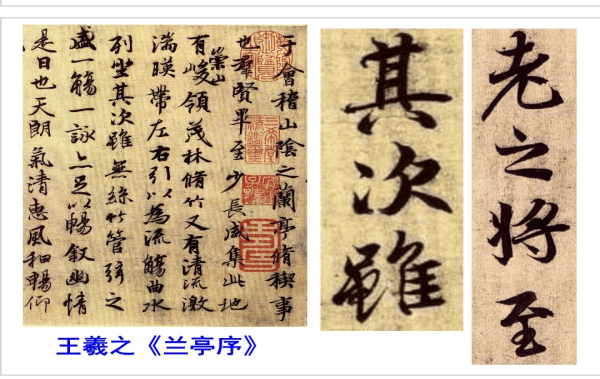 于會稽山陰之蘭亭脩稧事
也羣賢畢至少長咸集此地
有崇山峻領茂林脩竹又有清流激
湍暎帶左右引以為流觴曲水
列坐其次雖無絲竹管弦之
盛一觴一詠亦足以暢叙幽情
是日也天朗氣清惠風和暢仰
王羲之《兰亭序》
其次雖
老之将至